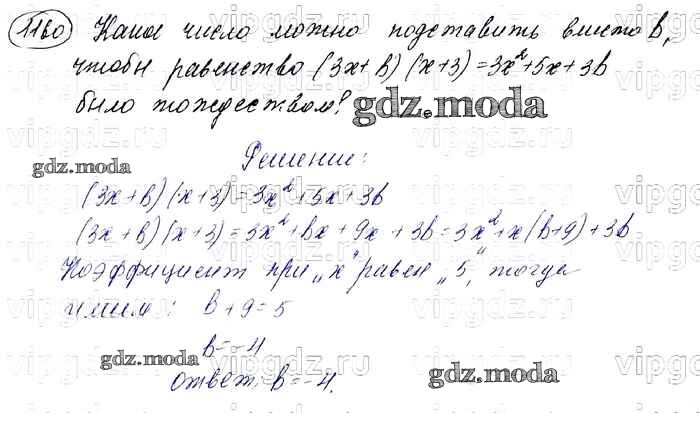 1160 Какое число можно подставить вместо b,
чтобы равенство (3x+b)(x+3)=3x²+5x+3b
было тождеством?
gdz.moda
Решение:
gdz.moda
(3x+b)(x+3)=3x²+5x+3b
(3x+b)(x+3)=3x²+bx+9x+3b=3x²+x(b+9)+3b
Коэффициент при „x" равен „5", тогда
имеем: b+9=5
b=-4
gdz.moda
ответ: b=-4.
gdz.moda
vipgdz.ru